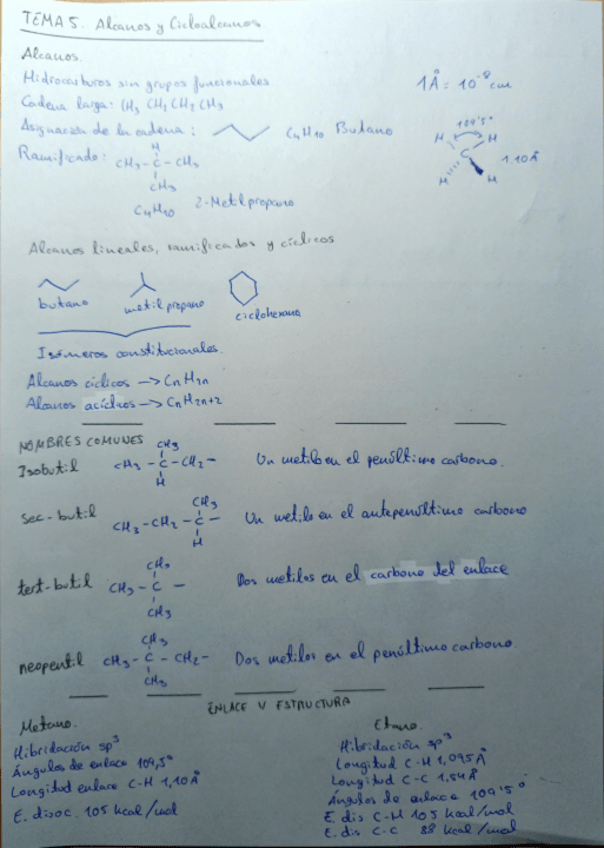 TEMA 5. Alcanos y Cicloalcanos
Alcanos.
Hidrocarburos sin grupos funcionales
1Å = 10⁻⁸ cm
Cadena larga: CH₃ CH₂ CH₂ CH₃
Asignación de la cadena: C₄H₁₀ Butano
109'5°
H H
C
H H
1.10Å
Ramificado: CH₃-C-CH₃
H
CH₃
C₄H₁₀ 2-Metilpropano
Alcanos lineales, ramificados y cíclicos
butano metilpropano ciclohexano
Isómeros constitucionales.
Alcanos cíclicos -> CnH2n
Alcanos acíclicos -> CnH2n+2
NOMBRES COMUNES
CH₃
Isobutil CH₃-C-CH₂- Un metilo en el penúltimo carbono.
H
CH₃
sec-butil CH₃-CH₂-C- Un metilo en el antepenúltimo carbono
H
CH₃
tert-butil CH₃-C- Dos metilos en el carbono del enlace
CH₃
CH₃
neopentil CH₃-C-CH₂- Dos metilos en el penúltimo carbono.
CH₃
ENLACE Y ESTRUCTURA
Metano.
Hibridación sp³
Ángulos de enlace 109,5°
Longitud enlace C-H 1,10Å
E. disoc. 105 kcal/mol
Etano.
Hibridación sp³
Longitud C-H 1,095Å
Longitud C-C 1,54Å
Ángulos de enlace 109'5°
E. dis C-H 105 kcal/mol
E. dis C-C 88 kcal/mol